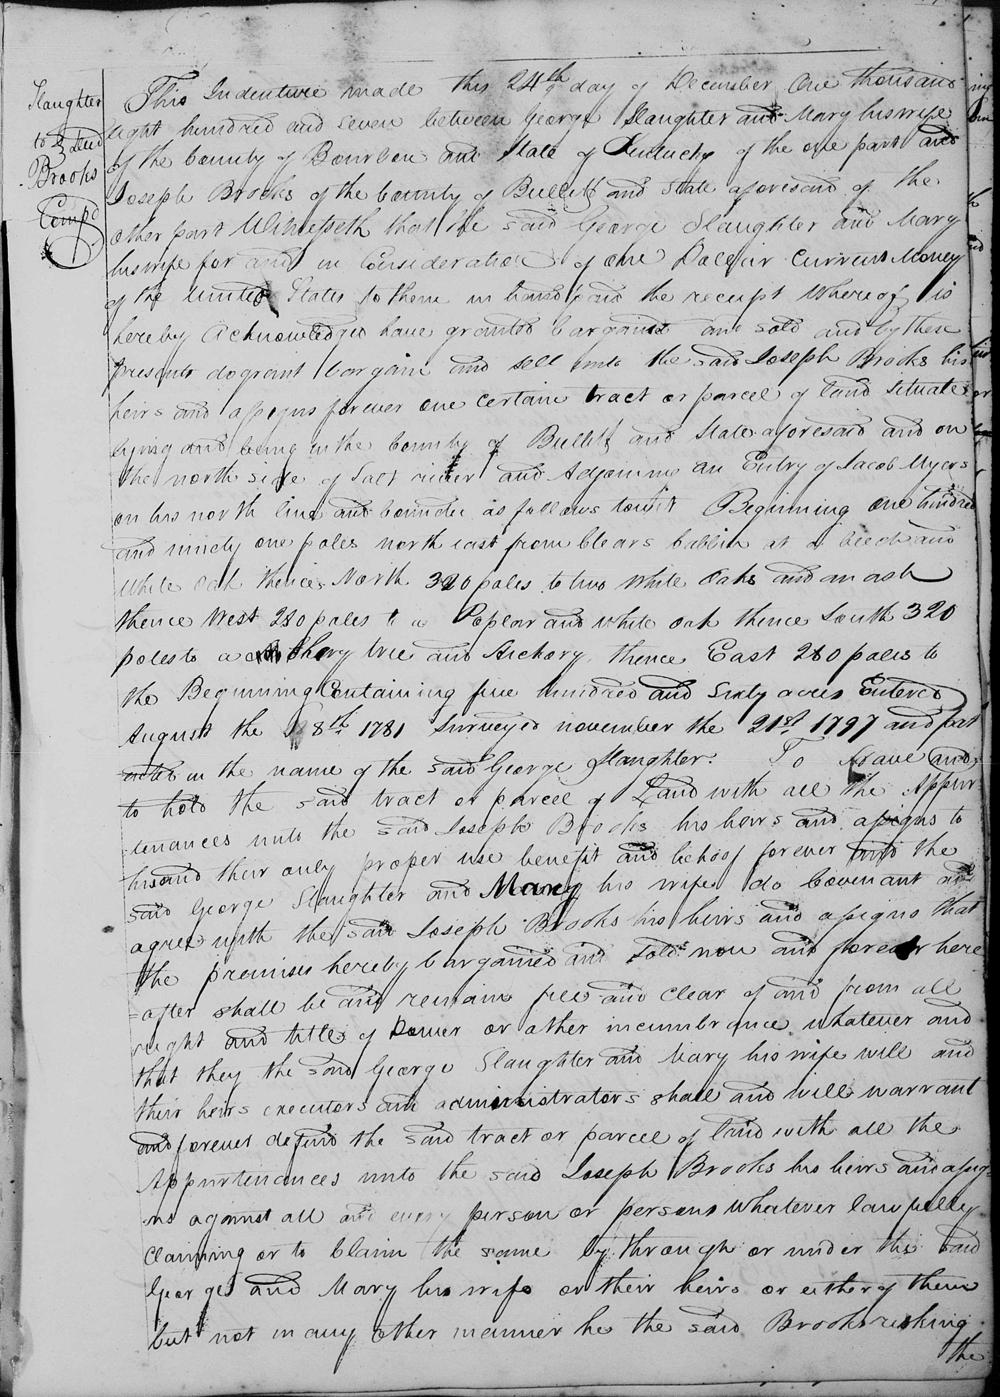 Slaughter
to } deed
Brooks
Compd
This Indenture made this 24th day of December One thousand
eight hundred and seven between George Slaughter and Mary his wife
of the County of Bourbon and State of Kentucky of the one part and
Joseph Brooks of the County of Bullitt and State aforesaid of the
other part Witnesseth that the said George Slaughter and Mary
his wife for and in Consideration of one Dollar Current Money
of the United States to them in hand paid the receipt Whereof is
hereby Acknowledged have granted bargaind and sold and by these
presents do grant bargain and sell unto the said Joseph Brooks his
heirs and assigns forever one certain tract or parcel of land Situate
lying and being in the County of Bullitt and State aforesaid and on
the north side of Salt river and Adjoining an Entry of Jacob Myers
on his north line and bounded as follows towit Beginning one hundred
and ninety one poles north east from Clears Cabbin at a beech and
White oak thence North 320 poles to two White Oaks and an ash
thence West 280 poles to a Poplar and white oak thence South 320
poles to a cherry tree and Hickory thence East 280 poles to
the Beginning Containing five hundred and Sixty acres Entered
August the 8th 1781 Surveyed november the 21st 1797 and pat
ented in the name of the said George Slaughter. To Have and
to hold the said tract or parcel of Land with all the Appur
-tenances unto the said Joseph Brooks his heirs and assigns to
his and their only proper use benefit and behoof forever and the
said George Slaughter and Mary his wife do Covenant and
agree with the said Joseph Brooks his heirs and assigns that
the premises hereby bargained and Sold now and forever here
-after shall be and remain free and clear of and from all
right and title of Dower or other incumbrance whatever and
that they the said George Slaughter and Mary his wife will and
their heirs executors and administrators shall and will warrant
and forever defend the said tract or parcel of land with all the
Appurtenances unto the said Joseph Brooks his heirs and assig-
ns against all and every person or persons Whatever lawfully
Claiming or to Claim the same by through or under the said
George and Mary his wife or their heirs or either of them
but not in any other manner he the said Brooks risking
the